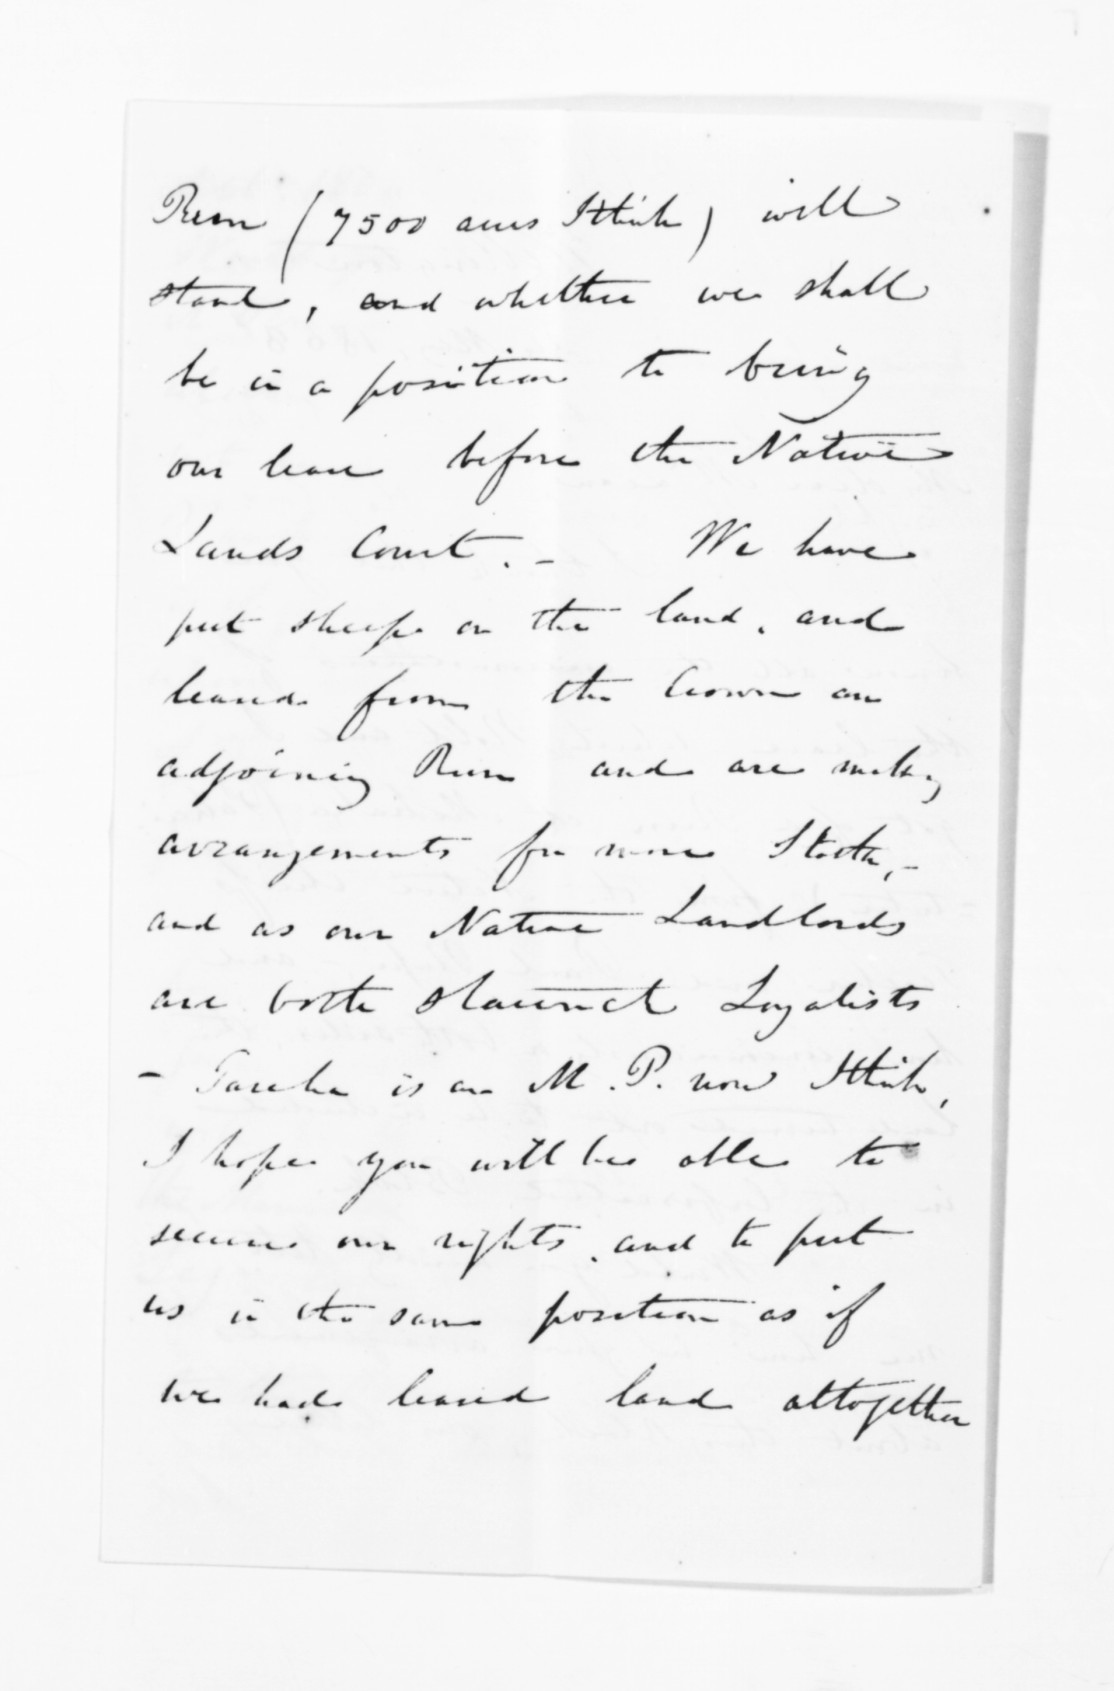 Run (7500 acres I think) will
stand, and whether we shall
be in a position to bring
our lease before the Native
Lands Court. - We have
put sheep on the land, and
leased from the Crown an
adjoining Run and are making
arrangements for more Stock, -
and as our Native Landlords
are both staunch Loyalists
- Tareha is an M.P. now I think,
I hope you will be able to
secure our rights, and to put
us in the same position as if
we had leased land altogether